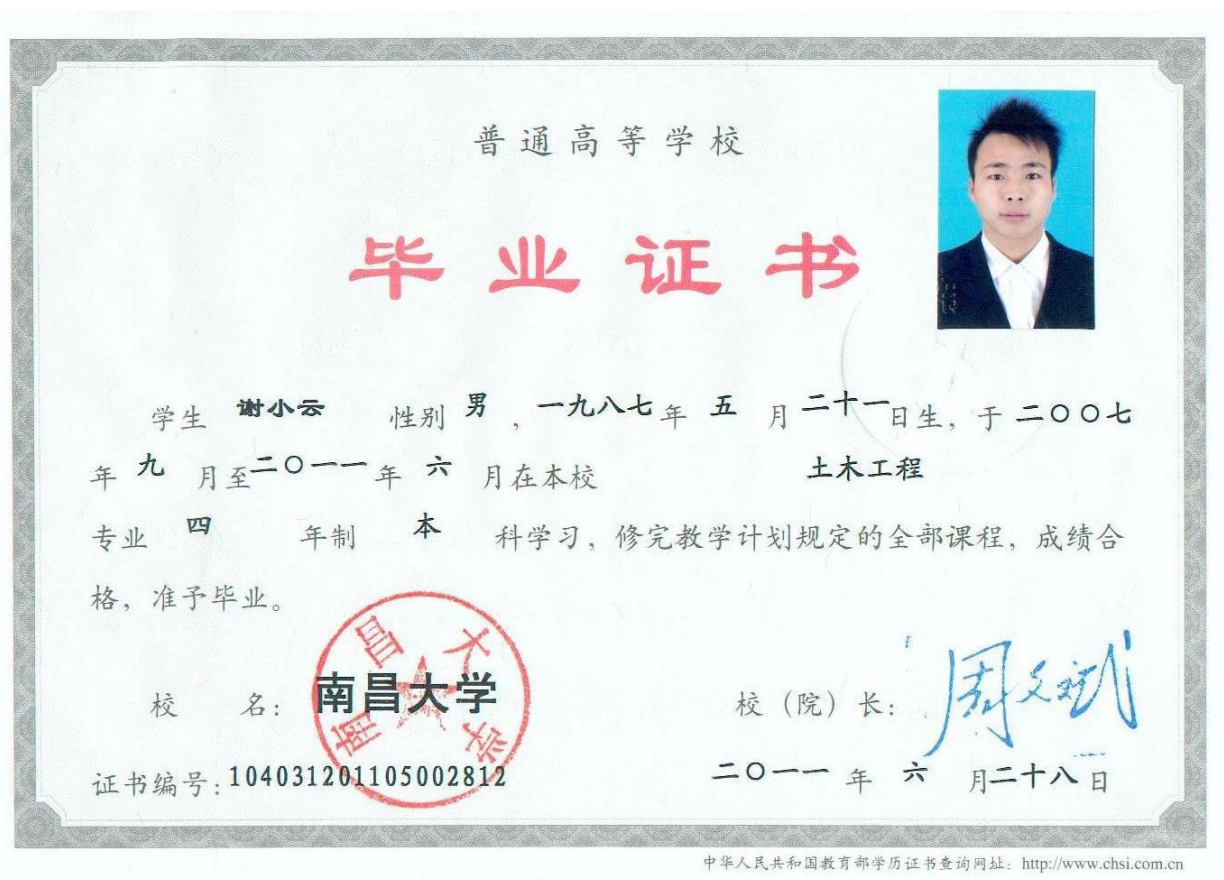 普通高等学校
毕业证书
学生 谢小云 性别 男 ，一九八七年 五 月二十一日生，于二〇〇七
年 九 月至二〇一一年 六 月在本校 土木工程
专业 四 年制 本 科学习，修完教学计划规定的全部课程，成绩合
格，准予毕业。
南昌大学
校 名：南昌大学 校（院）长：周文斌
证书编号：104031201105002812 二〇一一年 六 月二十八日
中华人民共和国教育部学历证书查询网址：http://www.chsi.com.cn